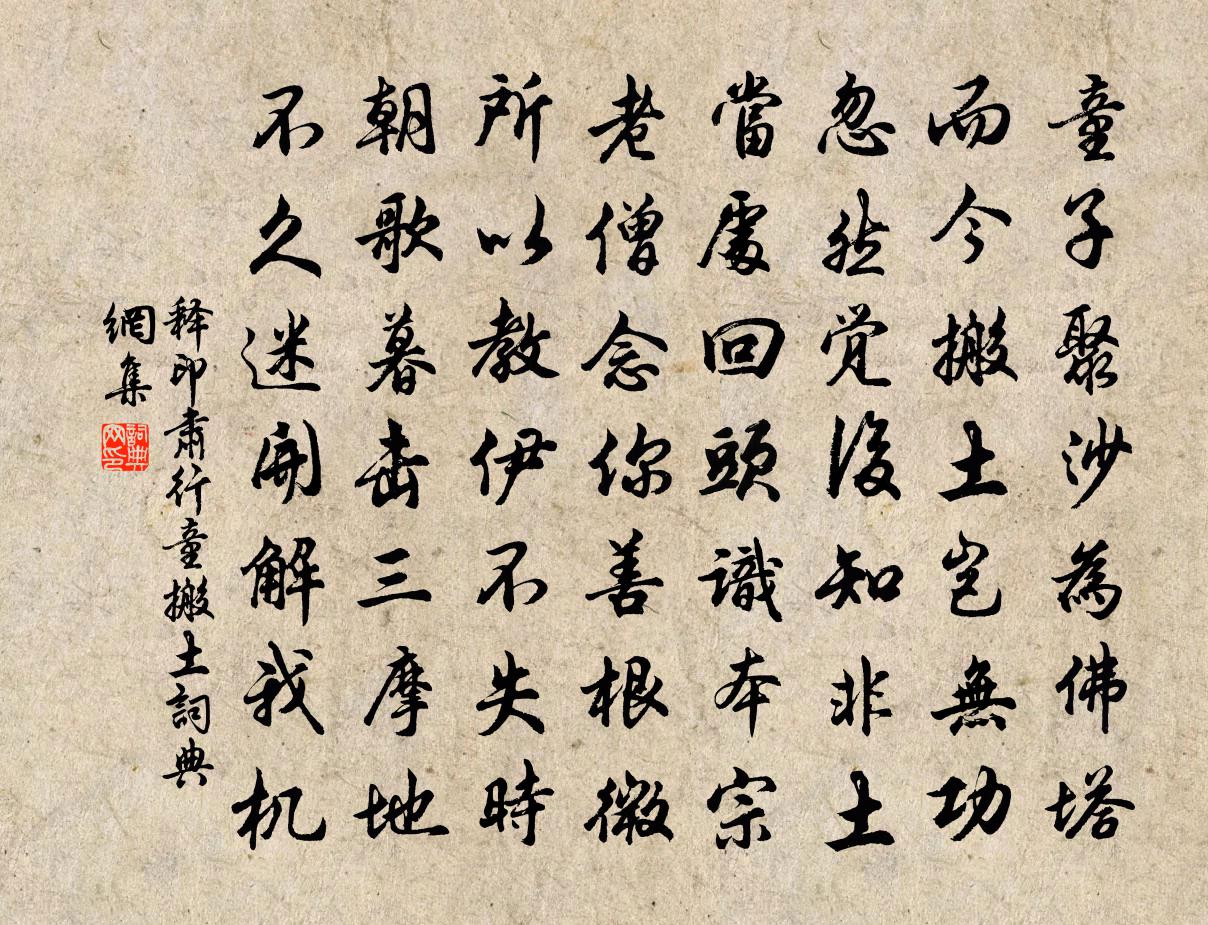 童子聚沙為佛塔
而今搬土豈無功
忽然覺後知非土
當處回頭識本宗
老僧念你善根微
所以教伊不失時
朝歌暮击三摩地
不久迷開解我机
释印肃行童搬土詞典
網集